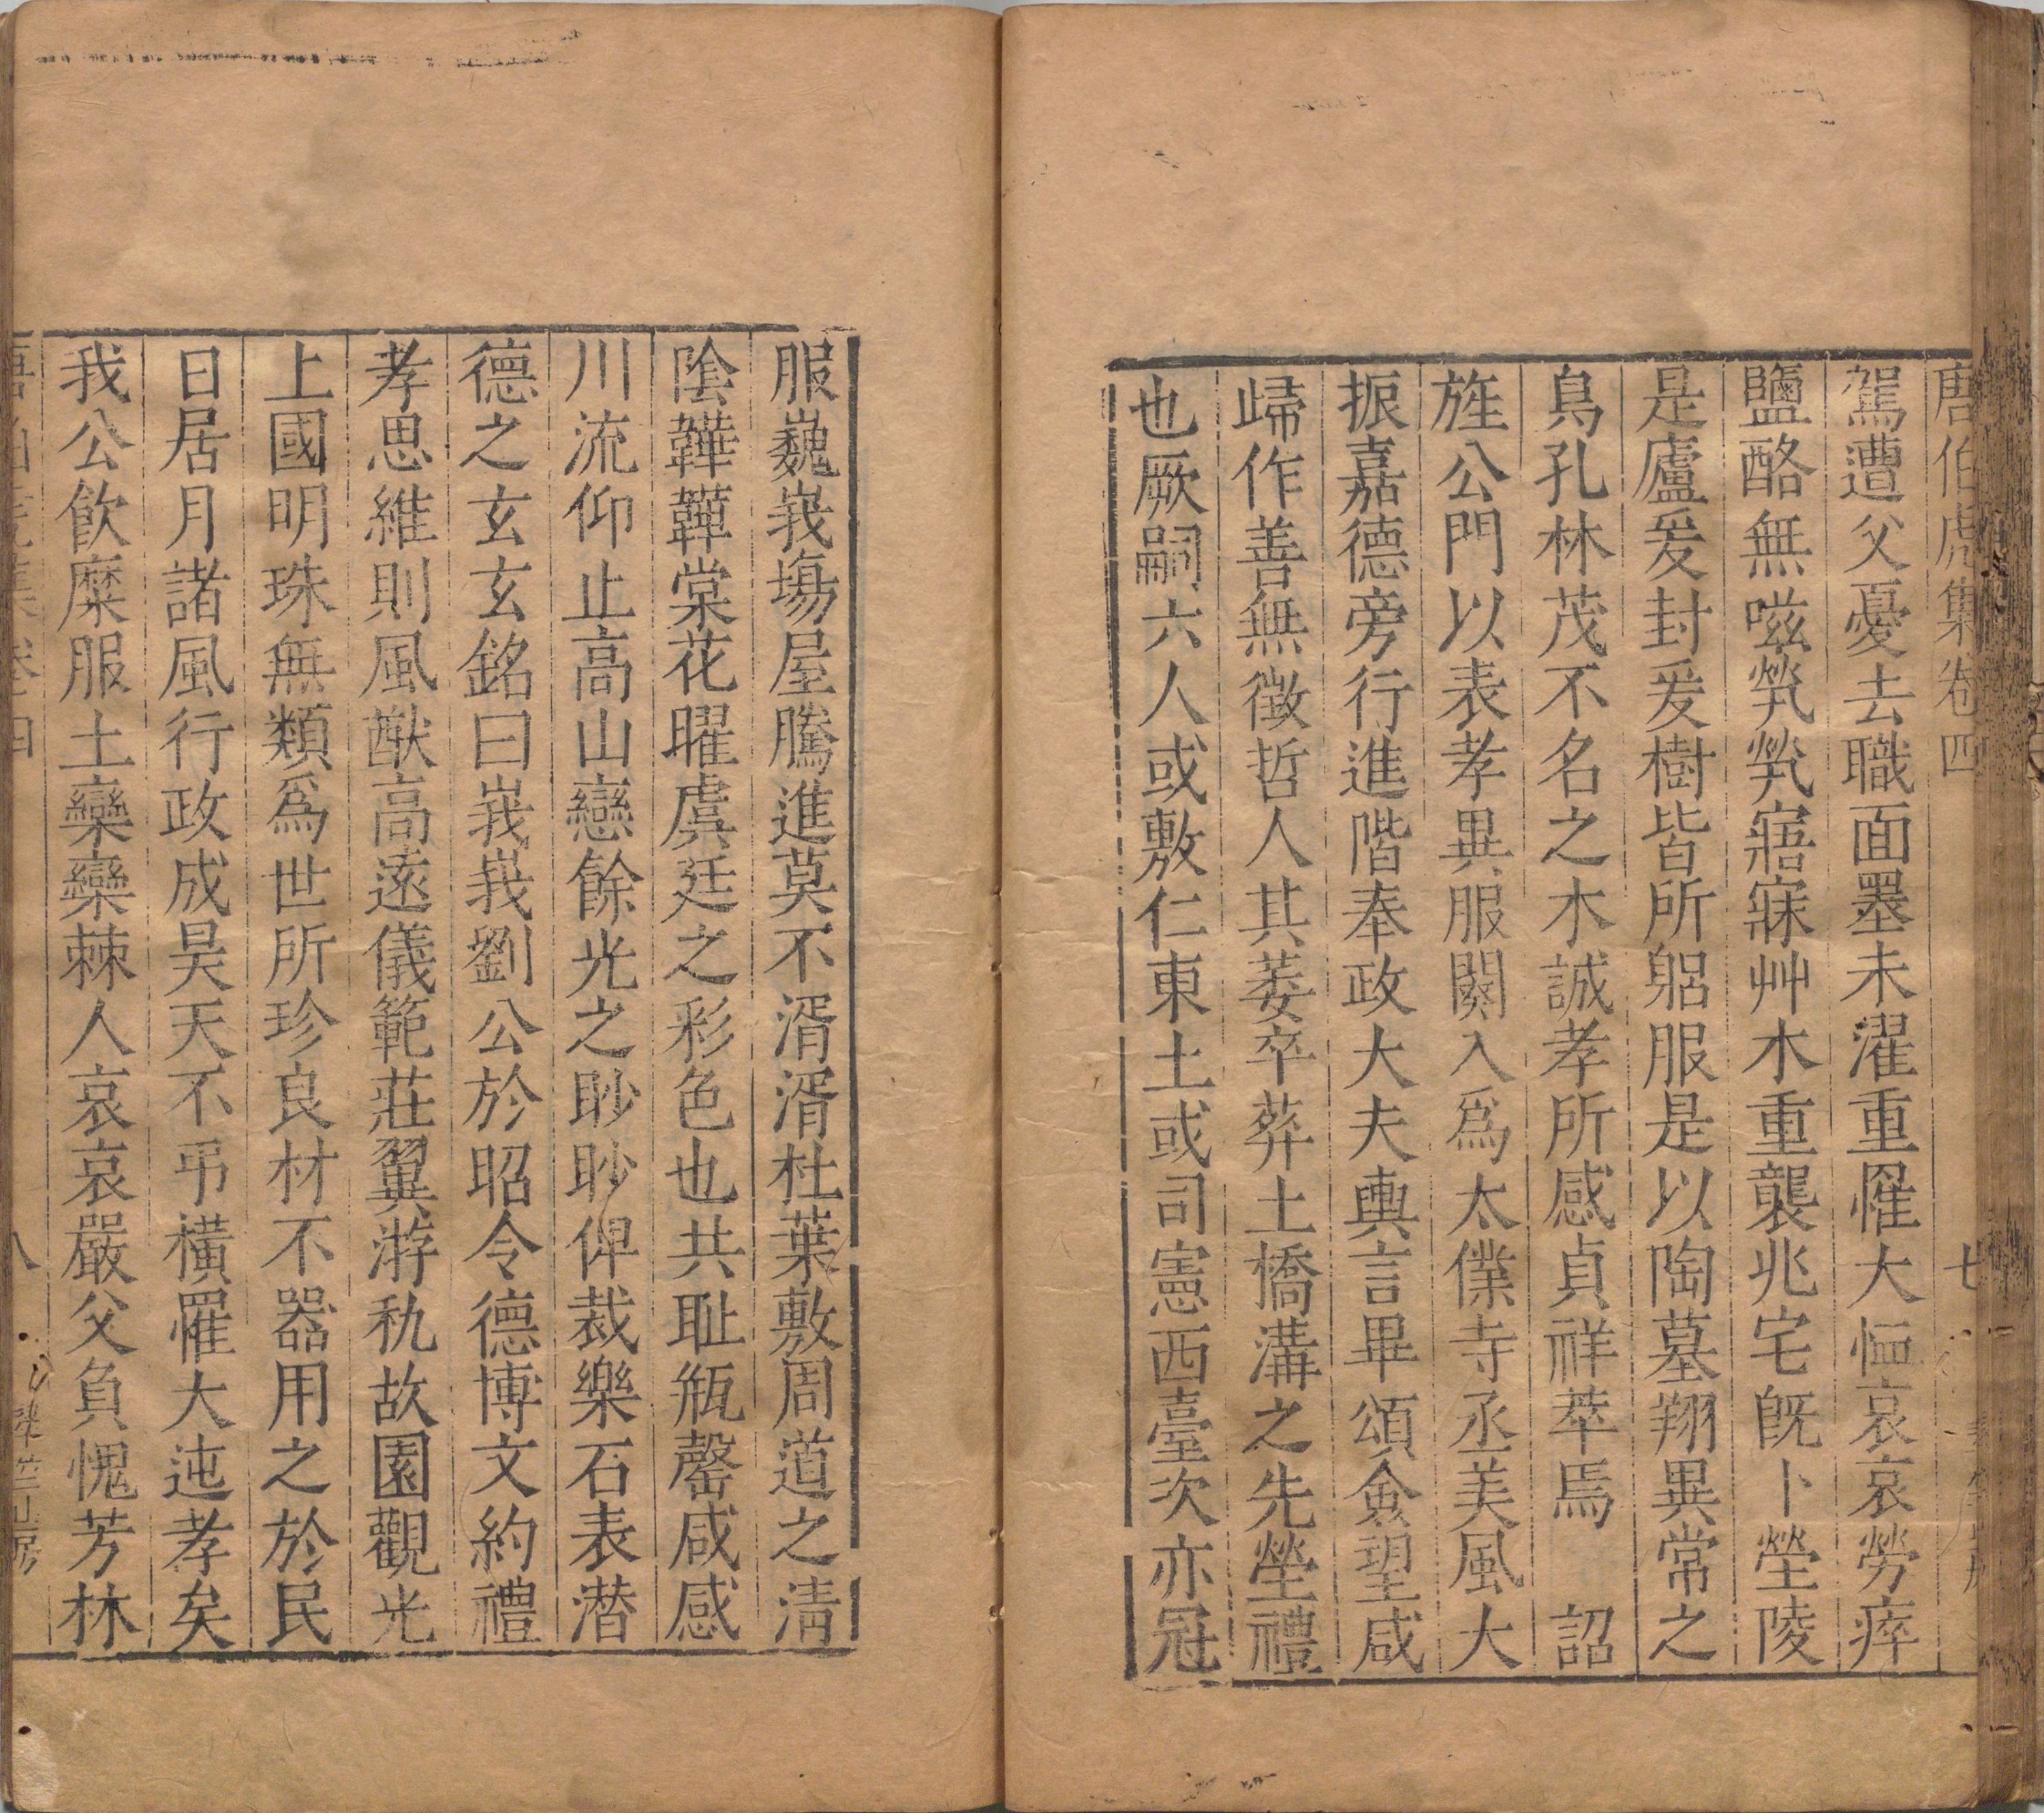 唐伯虎集卷四 七
駕遭父憂去職面墨未濯重罹大恤哀哀勞瘁
鹽酪無嗞煢煢寤寐艸木重襲兆宅旣卜塋陵
是廬爰封爰樹皆所躬服是以陶墓翔異常之
鳥孔林茂不名之木誠孝所感貞祥萃焉 詔
旌公門以表孝異服闋入爲太僕寺丞美風大
振嘉德旁行進階奉政大夫輿言畢頌僉望咸
歸作善無徵哲人其萎卒葬土橋溝之先塋禮
也厥嗣六人或敷仁東土或司憲西臺次亦冠
服巍峩塲屋騰進莫不湑湑杜葉敷周道之淸
陰韡韡棠花曜虞廷之彩色也共耻瓶罄咸感
川流仰止高山戀餘光之眇眇俾裁樂石表潜
德之玄玄銘曰峩峩劉公於昭令德博文約禮
孝思維則風猷高遠儀範莊翼游秇故園觀光
上國明珠無類爲世所珍良材不器用之於民
日居月諸風行政成昊天不弔橫罹大迍孝矣
我公飲糜服土欒欒棘人哀哀嚴父負愧芳林
八